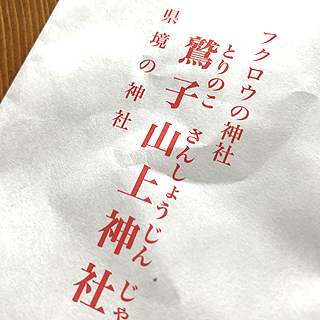 フクロウの神社
とりのこ さんしょうじんじゃ
鷲子山上神社
県境の神社